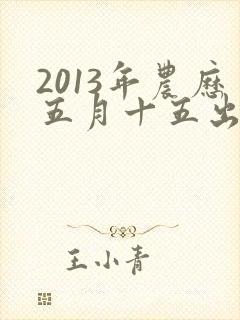 2013年農歷
五月十五出
王小青